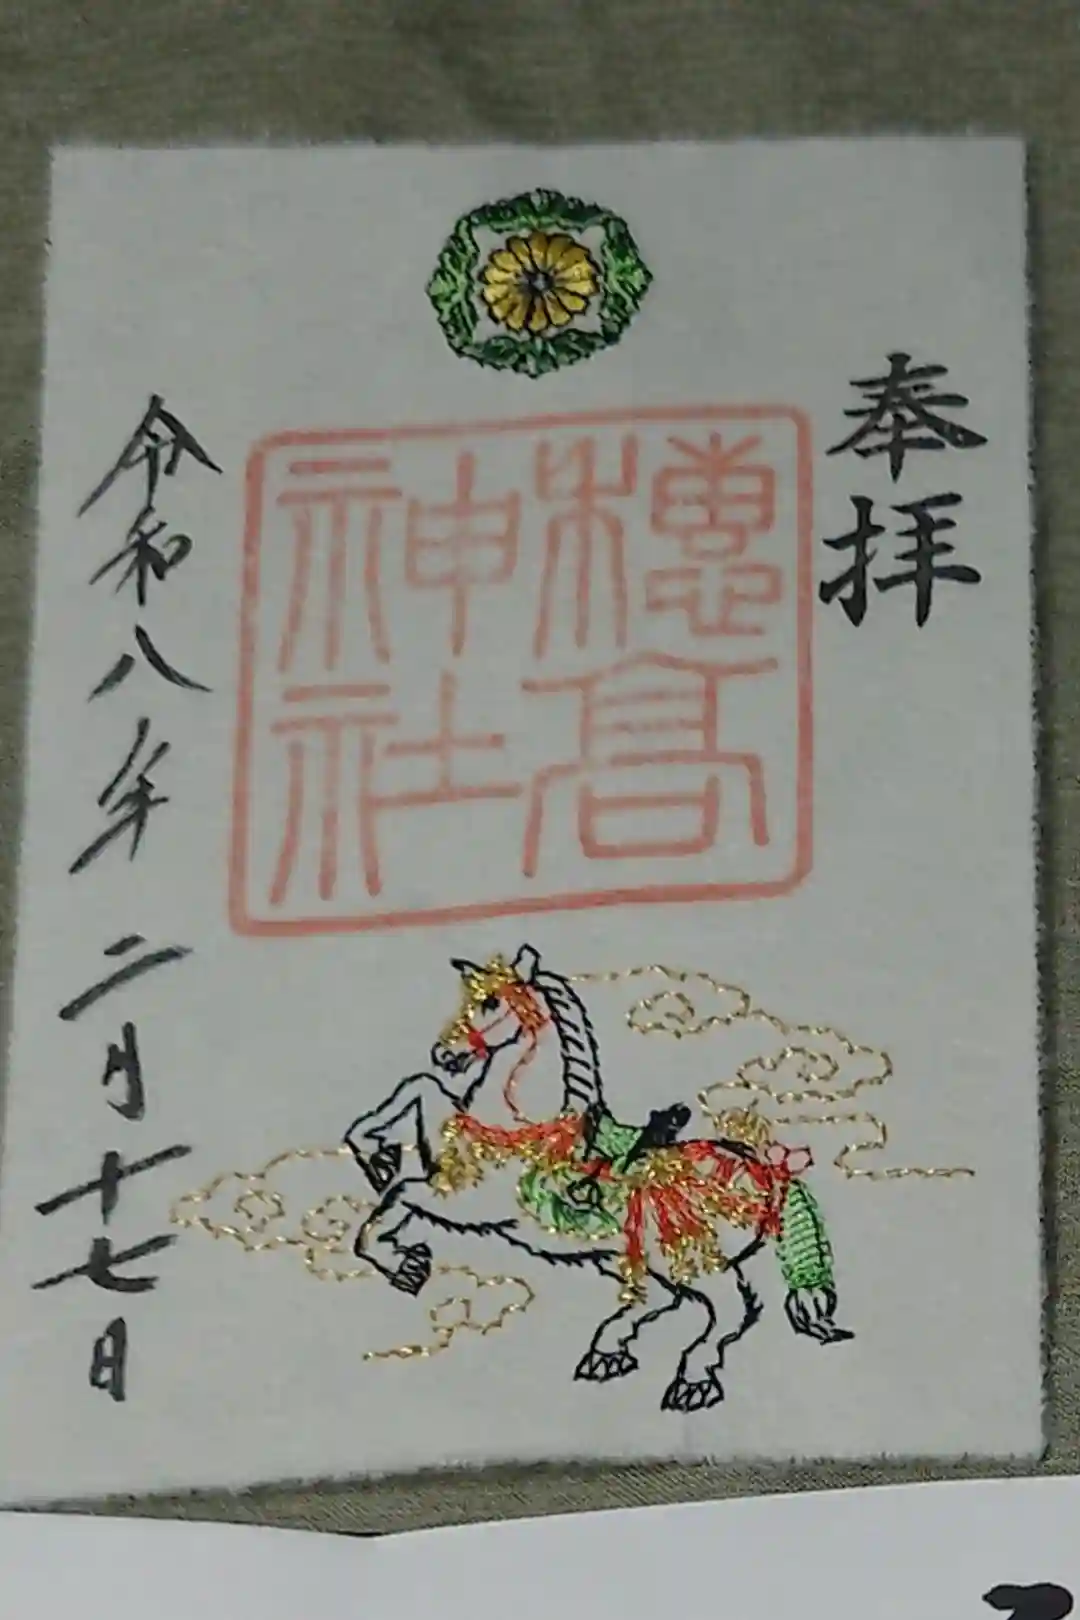 奉拝
穂高
神社
令和八年二月十七日